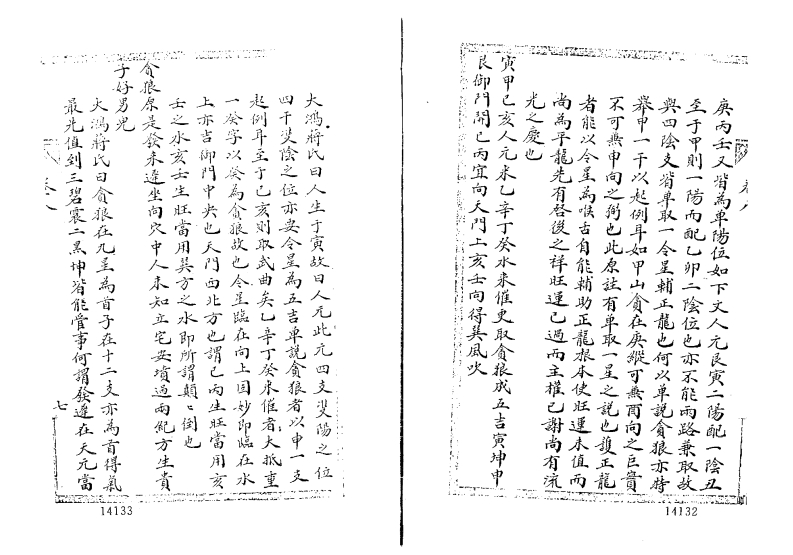 庚丙壬又皆為单陽位如下文人元艮寅二陽配一陰丑
至于甲則一陽而配乙卯二陰位也亦不能兩路兼取故
與四陰支皆单取一令星輔正龍也何以单説貪狼亦特
舉甲一干以起例耳如甲山貪在庚縱可無酉向之巨賁
不可無申向之弼也此原註有单取一星之説也護正龍
者能以令星為喉舌自能輔助正龍根本使旺運未值而
尚為平龍先有啓後之祥旺運已過而主權已謝尚有流
光之慶也
寅甲巳亥人元来乙辛丁癸水来催更取貪狼成五吉寅坤申
艮御門開巳丙宜向天門上亥壬向得巽風吹
卷八
14132
大鴻蔣氏曰人生于寅故曰人元此元四支雙陽之位
四干雙陰之位亦要令星為五吉单説貪狼者以申一支
起例耳至于巳亥則取武曲矣乙辛丁癸来催者大抵重
一癸字以癸為貪狼故也令星臨在向上固妙即臨在水
上亦吉御門中央也天門西北方也謂巳丙生旺當用亥
壬之水亥壬生旺當用巽方之水即所謂顛〻倒也
貪狼原是發来遲坐向穴中人未知立宅安墳過兩紀方生貴
子好男兒
大鴻蔣氏曰貪狼在九星為首子在十二支亦為首得氣
最先值到三碧震二黑坤皆能管事何謂發遲在天元當
卷八
七
14133